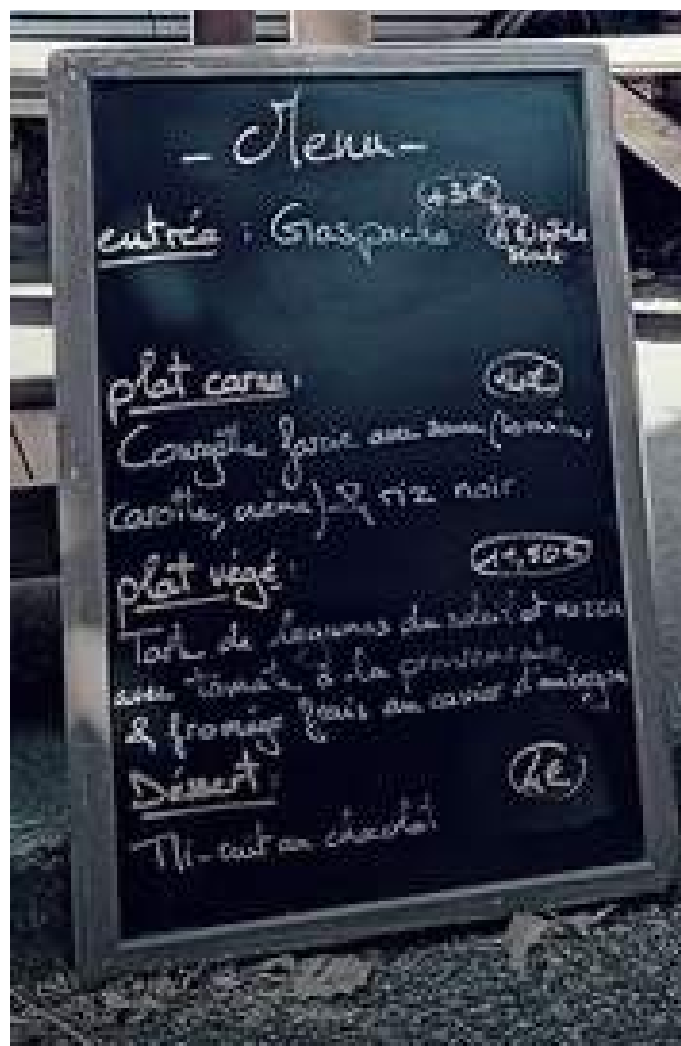 - Menu -
entrée : Gaspacho (+3€)
plat carné :
Courgette farcie avec sauce (tomate,
carotte, crème) & riz noir
plat végé : 11,50€
Tarte de légumes du soleil et mozza
avec tomate à la provençale
& fromage frais au caviar d'aubergine
Déssert : 4€
Mi-cuit au chocolat